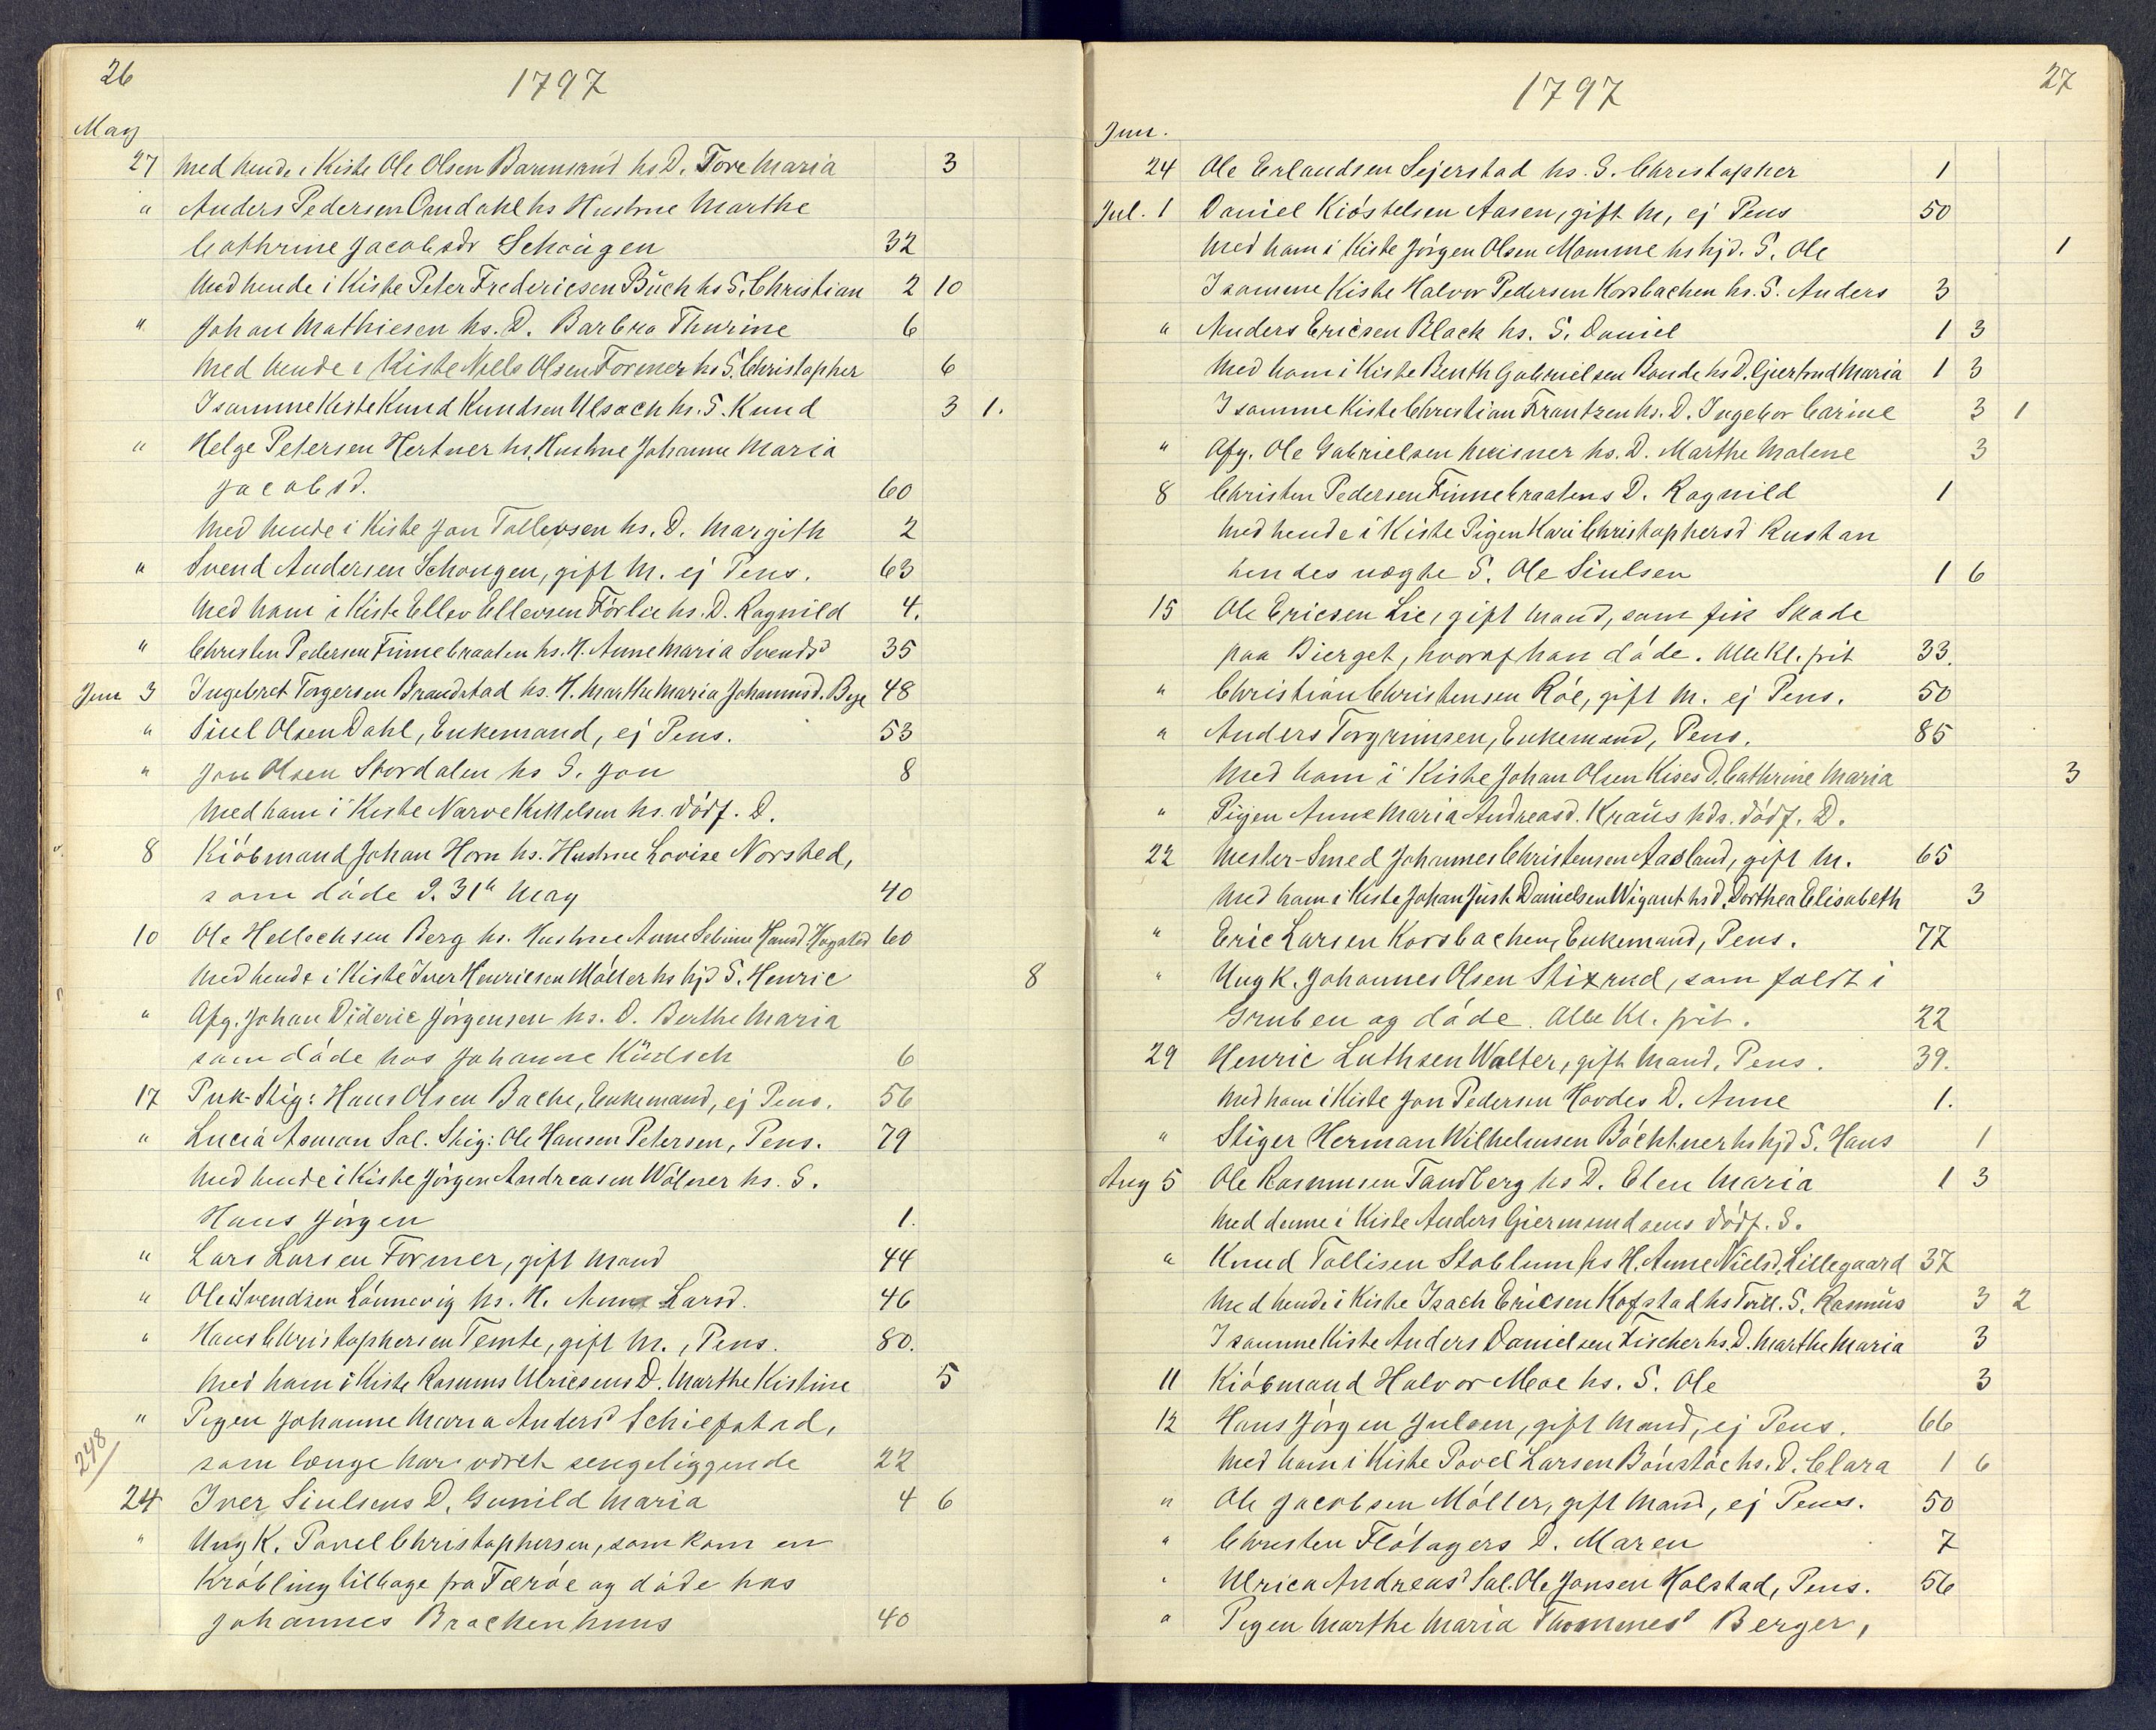 26
1797
May
27 Med hende i Kiste Ole Olsen Barmsrud hs D. Tore Maria 3
" Anders Pedersen Omdahl hs Hustrue Marthe
Cathrine Jacobsdr Schougen 32
Med hende i Kiste Peter Fredericsen Büch hs S. Christian 2 10
" Johan Mathiesen hs. D. Barbra Thurine 6
Med hende i Kiste Niels Olsen Former hs S. Christopher 6
I samme Kiste Knud Knudsen Ulsach hs. S. Knud 3 1.
" Helge Petersen Hertner hs. Hustrue Johanne Maria
Jacobsd. 60
Med hende i Kiste Jon Tollevsen hs. D. Margith 2
" Svend Andersen Schougen, gift M. ej Pens. 63
Med ham i Kiste Ellev Ellevsen Förlie hs. D. Ragnild 4.
" Christen Pedersen Finnebraaten hs. H. Anne Maria Svendsd 35
Jun 3 Ingebret Torgersen Brandstad hs. H. Marthe Maria Johannesd. Bye 48
" Siul Olsen Dahl, Enkemand, ej Pens. 53
" Jon Olsen Stordalen hs S. Jon 8
Med ham i Kiste Narve Kittelsen hs. dödf. D.
8 Kiöbmand Johan Horn hs. Hustrue Lovise Norsted,
som döde d. 31te May 40
10 Ole Hellechsen Berg hs. Hustrue Anne Sebine Hansd Hogstad 60
Med hende i Kiste Iver Henricsen Möller hs hjd S. Henric 8
" Afg. Johan Dideric Jörgensen hs. D. Berthe Maria
som döde hos Johanne Küdsch 6
17 Puk-Stig: Hans Olsen Bache, Enkemand, ej Pens. 56
" Lucia Asman Sal. Stig: Ole Hansen Petersen, Pens. 79
Med hende i Kiste Jörgen Andreasen Wölner hs. S.
Hans Jörgen 1.
" Lars Larsen Former, gift Mand 44
" Ole Svendsen Lönnevig hs. H. Anne Larsd. 46
" Hans Christophersen Temte, gift M., Pens. 80.
Med ham i Kiste Rasmus Ulricsens D. Marthe Kistine 5
" Pigen Johanne Maria Andersd Schiefstad,
som længe har været sengeliggende 22
248
24 Iver Siulsens D. Gunild Maria 4 6
" Ung K. Povel Christophersen, som kom en
Kröbling tilbage fra Færöe og döde hos
Johannes Brackenhuus 40
27
1797
Jun.
24 Ole Erlandsen Sejerstad hs. S. Christopher 1
Jul. 1 Daniel Kiöstelsen Aasen, gift M, ej Pens 50
Med ham i Kiste Jörgen Olsen Momme hs hjd. S. Ole 1
I samme Kiste Halvor Pedersen Korsbachen hs. S. Anders 3
" Anders Ericsen Black hs. S. Daniel 1 3
Med ham i Kiste Benth Gabrielsen Bonde hs D. Giertrud Maria 1 3
I samme Kiste Christian Frantzen hs. D. Ingebor Carine 3 1
" Afg. Ole Gabrielsen Meisner hs. D. Marthe Malene 3
8 Christen Pedersen Finnebraatens D. Ragnild 1
Med hende i Kiste Pigen Kari Christophersd Rustan
hendes uægte S. Ole Siulsen 1 6
15 Ole Ericsen Lie, gift Mand, som fik Skade
paa Bierget, hvoraf han döde. Alle Kl. frit 33.
" Christian Christensen Röe, gift M. ej Pens. 50
" Anders Torgrimsen, Enkemand, Pens. 85
Med ham i Kiste Johan Olsen Kises D. Cathrine Maria 3
" Pigen Anne Maria Andreasd. Kraüs hds. dödf. D.
22 Mester-Smed Johannes Christensen Aasland, gift M. 65
Med ham i Kiste Johan Just Danielsen Wigant hs D. Dorthea Elisabeth 3
" Eric Larsen Korsbachen, Enkemand, Pens. 77
" Ung K. Johannes Olsen Stixrud, som faldt i
Gruben og döde. Alle Kl. frit. 22
29 Henric Luthsen Walter, gift Mand, Pens. 39.
Med ham i Kiste Jon Pedersen Hovdes D. Anne 1.
" Stiger Herman Wilhelmsen Böchtner hs hjd S. Hans 1
Aug 5 Ole Rasmusen Tandberg hs D. Elen Maria 1 3
Med denne i Kiste Anders Giermundsens dödf. S.
" Knud Tollisen Stablum hs H. Anne Nielsd. Lillegaard 37
Med hende i Kiste Isach Ericsen Kofstad hs Tvill. S. Rasmüs 3 2
I samme Kiste Anders Danielsen Fischer hs. D. Marthe Maria 3
11 Kiöbmand Halvor Moe hs. S. Ole 3
12 Hans Jörgen Julsen, gift Mand, ej Pens. 66
Med ham i Kiste Povel Larsen Bönstöe hs. D. Clara 1 6
" Ole Jacobsen Möller, gift Mand, ej Pens. 50
" Christen Flötagers D. Maren 7
" Ulrica Andreasd Sal. Ole Jonsen Holstad, Pens. 56
" Pigen Marthe Maria Thommesd Berger,